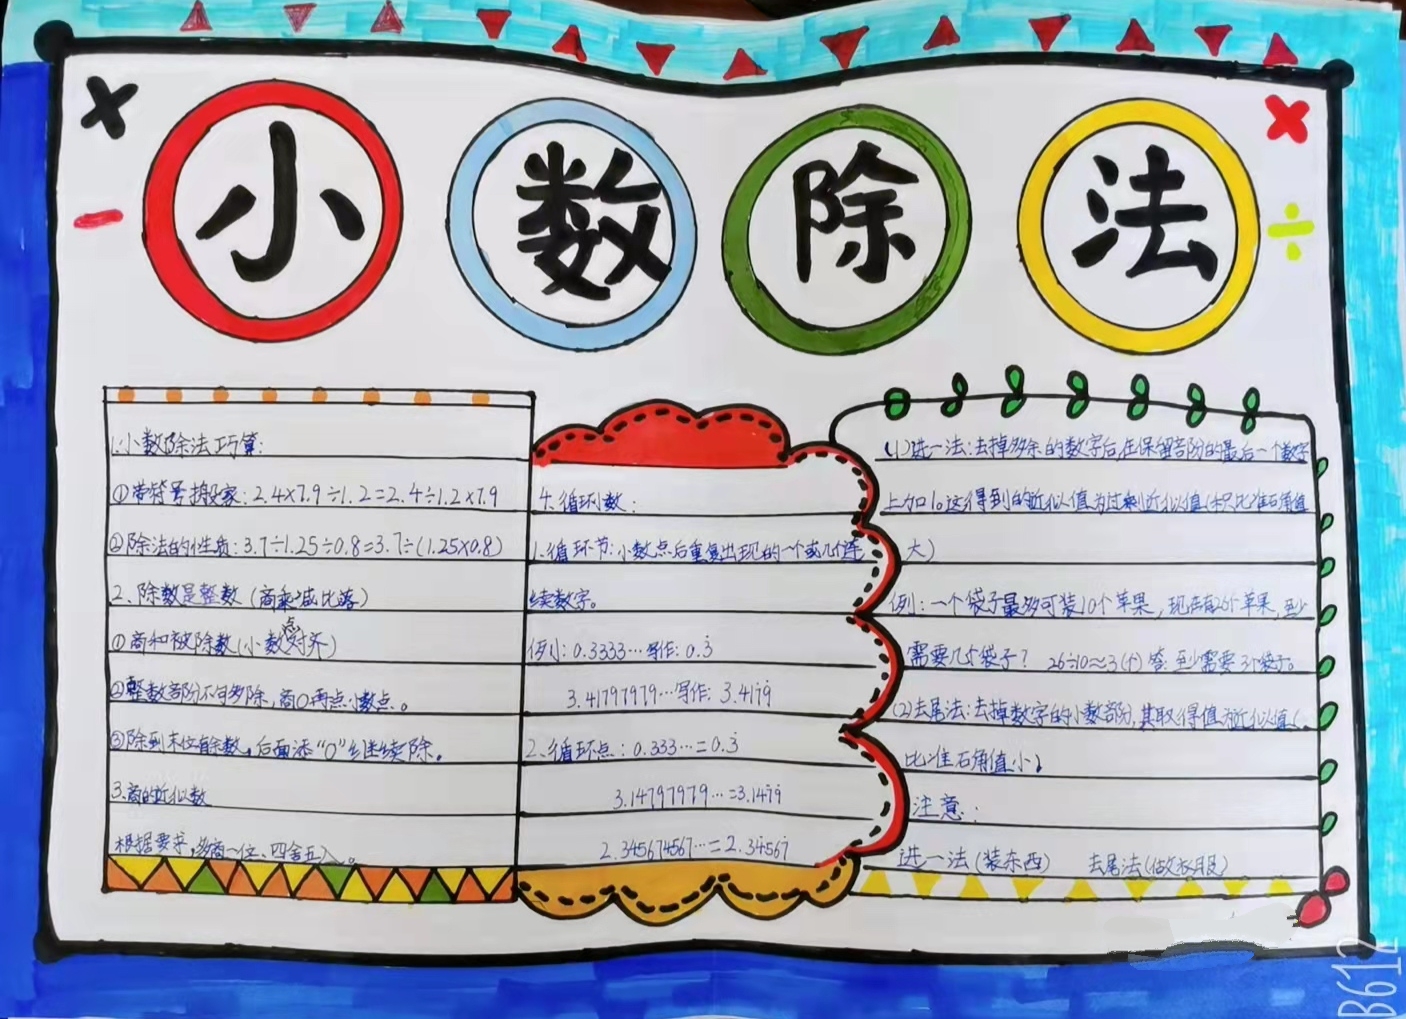 小数除法
1.小数除法巧算:
①带符号搬家:2.4×7.9÷1.2=2.4÷1.2×7.9
②除法的性质:3.7÷1.25÷0.8=3.7÷(1.25×0.8)
2、除数是整数(商乘减比落)
①商和被除数(小数点对齐)
②整数部分不够除,商0再点小数点。
③除到末位有余数,后面添“0”继续除。
3.商的近似数
根据要求,多商一位、四舍五入。
4.循环数:
1.循环节:小数点后重复出现的一个或几个连
续数字。
例:0.3333…写作:0.3̇
3.41797979…写作:3.417̇9̇
2、循环点:0.333…=0.3̇
3.14797979…=3.147̇9̇
2.345674567…=2.34̇567̇
(1)进一法:去掉多余的数字后,在保留部份的最后一个数字
上加1。这得到的近似值为过剩近似值(积比准确值
大)
例:一个袋子最多可装10个苹果,现在有26个苹果,至少
需要几个袋子? 26÷10≈3(个) 答:至少需要3个袋子。
(2)去尾法:去掉数字的小数部分,其取得值为近似值(
比准确值小)
注意:
进一法(装东西) 去尾法(做衣服)
B612